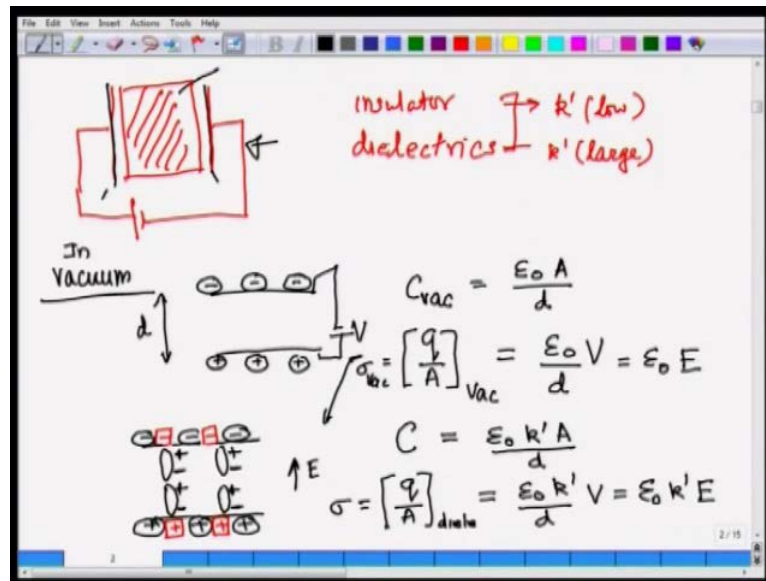 File Edit View Insert Actions Tools Help
insulator → k' (low)
dielectrics k' (large)
In
vacuum
d
V
C_vac = ε₀ A / d
σ_vac = [q / A]_vac = ε₀ / d V = ε₀ E
↑ E
C = ε₀ k' A / d
σ = [q / A]_diele = ε₀ k' / d V = ε₀ k' E
2 / 15
2